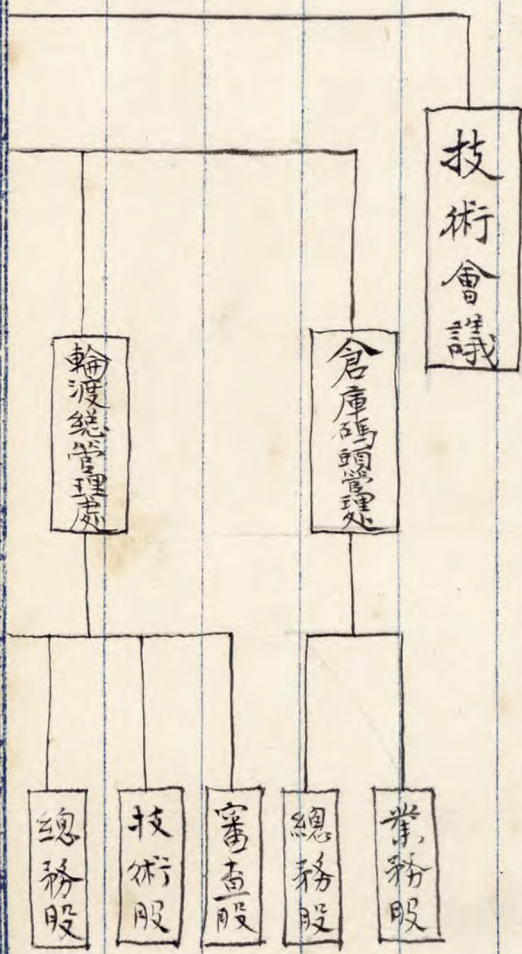 技術會議
倉庫碼頭管理处
輪渡總管理處
業務股
總務股
審查股
技術股
總務股